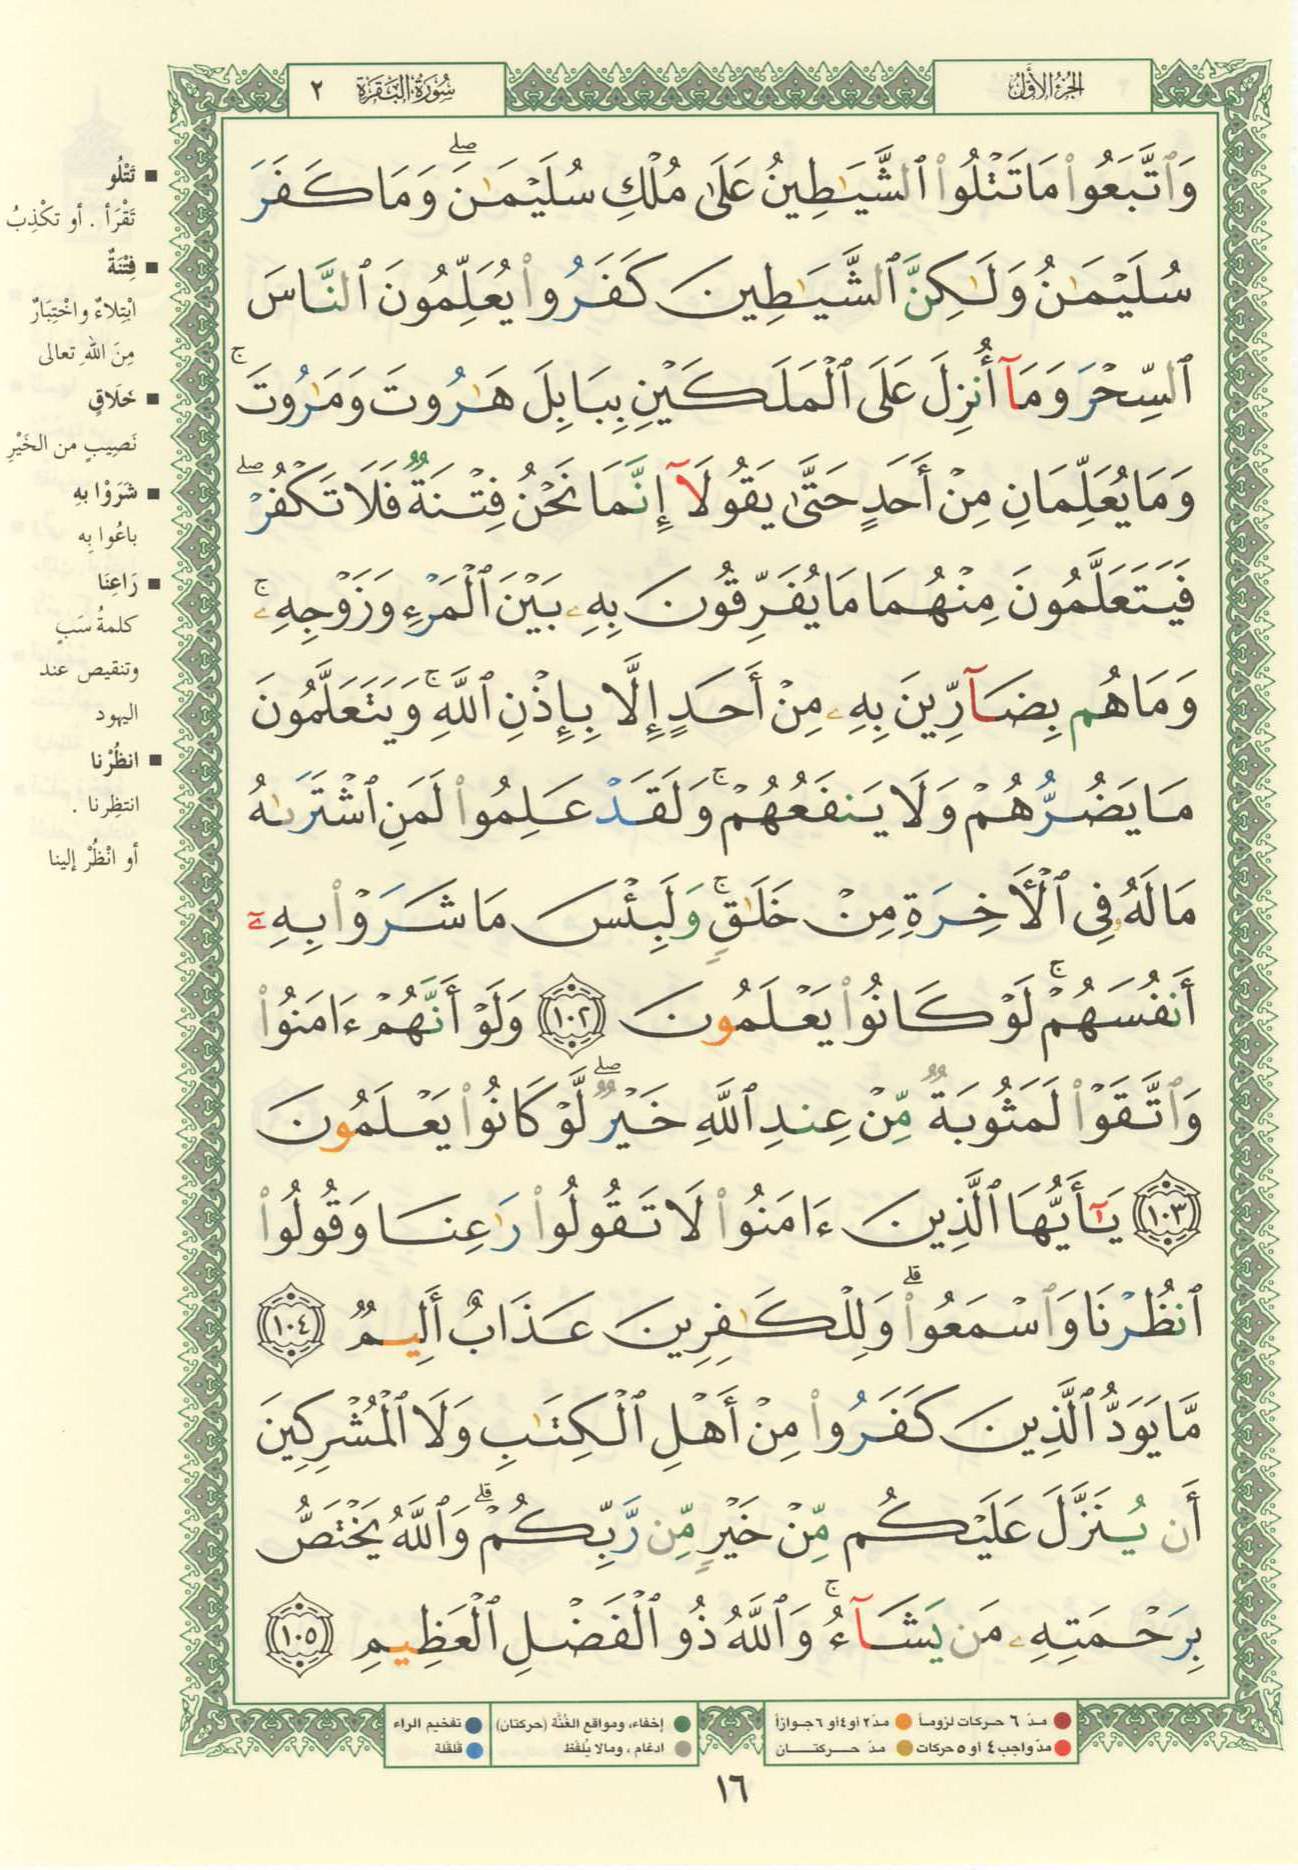 الجزء الأول
سورة البقرة ٢
وَٱتَّبَعُوا۟ مَا تَتْلُوا۟ ٱلشَّيَـٰطِينُ عَلَىٰ مُلْكِ سُلَيْمَـٰنَ ۖ وَمَا كَفَرَ
سُلَيْمَـٰنُ وَلَـٰكِنَّ ٱلشَّيَـٰطِينَ كَفَرُوا۟ يُعَلِّمُونَ ٱلنَّاسَ
ٱلسِّحْرَ وَمَآ أُنزِلَ عَلَى ٱلْمَلَكَيْنِ بِبَابِلَ هَـٰرُوتَ وَمَـٰرُوتَ ۚ
وَمَا يُعَلِّمَانِ مِنْ أَحَدٍ حَتَّىٰ يَقُولَآ إِنَّمَا نَحْنُ فِتْنَةٌ فَلَا تَكْفُرْ ۖ
فَيَتَعَلَّمُونَ مِنْهُمَا مَا يُفَرِّقُونَ بِهِۦ بَيْنَ ٱلْمَرْءِ وَزَوْجِهِۦ ۚ
وَمَا هُم بِضَآرِّينَ بِهِۦ مِنْ أَحَدٍ إِلَّا بِإِذْنِ ٱللَّهِ ۚ وَيَتَعَلَّمُونَ
مَا يَضُرُّهُمْ وَلَا يَنفَعُهُمْ ۚ وَلَقَدْ عَلِمُوا۟ لَمَنِ ٱشْتَرَىٰهُ
مَا لَهُۥ فِى ٱلْـَٔاخِرَةِ مِنْ خَلَـٰقٍ ۚ وَلَبِئْسَ مَا شَرَوْا۟ بِهِۦٓ
أَنفُسَهُمْ ۚ لَوْ كَانُوا۟ يَعْلَمُونَ ١٠٢ وَلَوْ أَنَّهُمْ ءَامَنُوا۟
وَٱتَّقَوْا۟ لَمَثُوبَةٌ مِّنْ عِندِ ٱللَّهِ خَيْرٌ ۖ لَّوْ كَانُوا۟ يَعْلَمُونَ
١٠٣ يَـٰٓأَيُّهَا ٱلَّذِينَ ءَامَنُوا۟ لَا تَقُولُوا۟ رَٰعِنَا وَقُولُوا۟
ٱنظُرْنَا وَٱسْمَعُوا۟ ۗ وَلِلْكَـٰفِرِينَ عَذَابٌ أَلِيمٌ ١٠٤
مَّا يَوَدُّ ٱلَّذِينَ كَفَرُوا۟ مِنْ أَهْلِ ٱلْكِتَـٰبِ وَلَا ٱلْمُشْرِكِينَ
أَن يُنَزَّلَ عَلَيْكُم مِّنْ خَيْرٍ مِّن رَّبِّكُمْ ۗ وَٱللَّهُ يَخْتَصُّ
بِرَحْمَتِهِۦ مَن يَشَآءُ ۚ وَٱللَّهُ ذُو ٱلْفَضْلِ ٱلْعَظِيمِ ١٠٥
■ تَتْلُو
تَقْرَأ . أو تَكْذِبُ
■ فِتْنَةٌ
ابْتِلاءٌ واخْتِبَارٌ
مِنَ اللهِ تعالى
■ خَلَاقٍ
نَصِيبٍ من الخَيْرِ
■ شَرَوْا بِهِ
باعُوا بِه
■ رَاعِنَا
كلمةُ سَبٍ
وتنقيص عند
اليهود
■ انظُرْنا
انتظِرنا .
أو انْظُرْ إلينا
● مدّ ٦ حركات لزوماً ● مدّ ٢ أو ٤ أو ٦ جوازاً
● مدّ واجب ٤ أو ٥ حركات ● مدّ حركتان
● إخفاء، ومواقع الغُنَّة (حركتان) ● تفخيم الراء
● ادغام ، ومالا يُلفَظ ● قلقلة
١٦